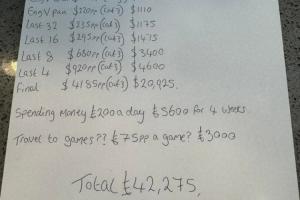 Eng v Pan $220pp (cat 3) $1110
Last 32 $235pp (cat 3) $1175
Last 16 $295pp (cat 3) $1475
Last 8 $680pp (cat 3) $3400
Last 4 $920pp (cat 3) $4600
Final $4185pp (cat 3) $20,925.
Spending Money £200 a day £5600 for 4 weeks
Travel to games?? £75pp a game? £3000
Total £42,275.